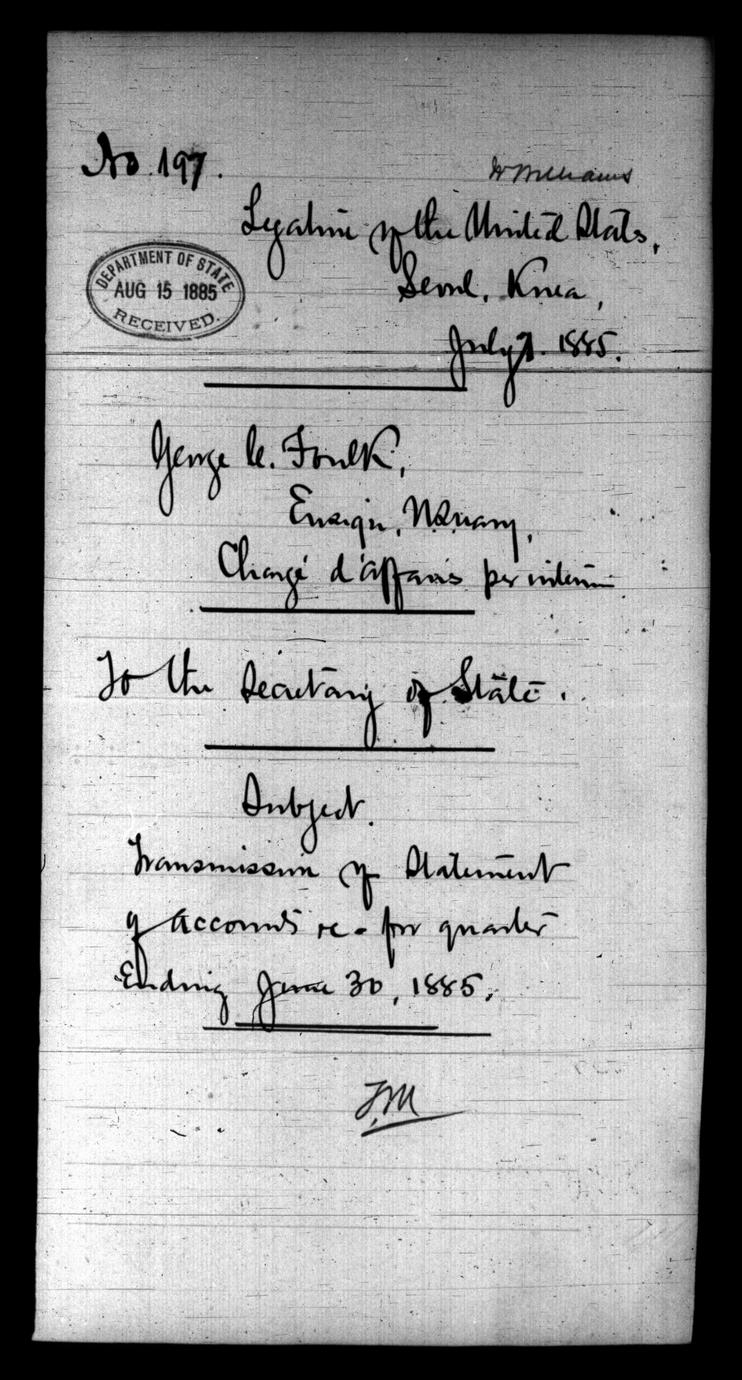 No. 197.
Mr Williams
Legation of the United States,
Seoul, Korea,
July 1. 1885.
DEPARTMENT OF STATE
AUG 15 1885
RECEIVED.
George C. Foulk,
Ensign, U.S. Navy,
Chargé d'affaires per interim
To the Secretary of State.
Subject.
Transmission of Statement
of accounts &c. for quarter
Ending June 30, 1885.